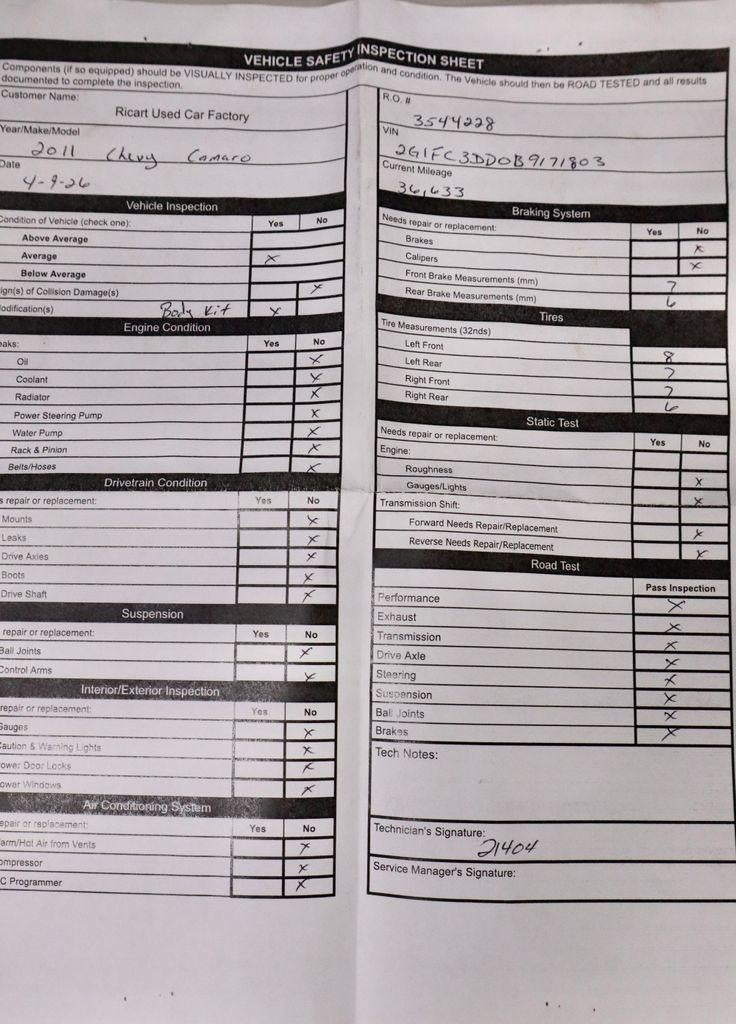 VEHICLE SAFETY INSPECTION SHEET
Components (if so equipped) should be VISUALLY INSPECTED for proper operation and condition. The Vehicle should then be ROAD TESTED and all results
documented to complete the inspection.
Customer Name:
Ricart Used Car Factory
Year/Make/Model
2011 Chevy Camaro
Date
4-9-26
R.O. #
3544228
VIN
2G1FC3DD0B9171803
Current Mileage
36,633
Vehicle Inspection
Condition of Vehicle (check one): Yes No
Above Average
Average X
Below Average
ign(s) of Collision Damage(s) X
odification(s) Body Kit X
Engine Condition
eaks: Yes No
Oil X
Coolant X
Radiator X
Power Steering Pump X
Water Pump X
Rack & Pinion X
Belts/Hoses X
Drivetrain Condition
s repair or replacement: Yes No
Mounts X
Leaks X
Drive Axles X
Boots X
Drive Shaft X
Suspension
repair or replacement: Yes No
Ball Joints X
Control Arms X
Interior/Exterior Inspection
repair or replacement: Yes No
Gauges X
Caution & Warning Lights X
ower Door Locks X
ower Windows X
Air Conditioning System
epair or replacement: Yes No
arm/Hot Air from Vents X
ompressor X
C Programmer X
Braking System
Needs repair or replacement: Yes No
Brakes X
Calipers X
Front Brake Measurements (mm) 7
Rear Brake Measurements (mm) 6
Tires
Tire Measurements (32nds)
Left Front 8
Left Rear 7
Right Front 7
Right Rear 6
Static Test
Needs repair or replacement: Yes No
Engine:
Roughness X
Gauges/Lights X
Transmission Shift:
Forward Needs Repair/Replacement X
Reverse Needs Repair/Replacement X
Road Test
Pass Inspection
Performance X
Exhaust X
Transmission X
Drive Axle X
Steering X
Suspension X
Ball Joints X
Brakes X
Tech Notes:
Technician's Signature:
21404
Service Manager's Signature: